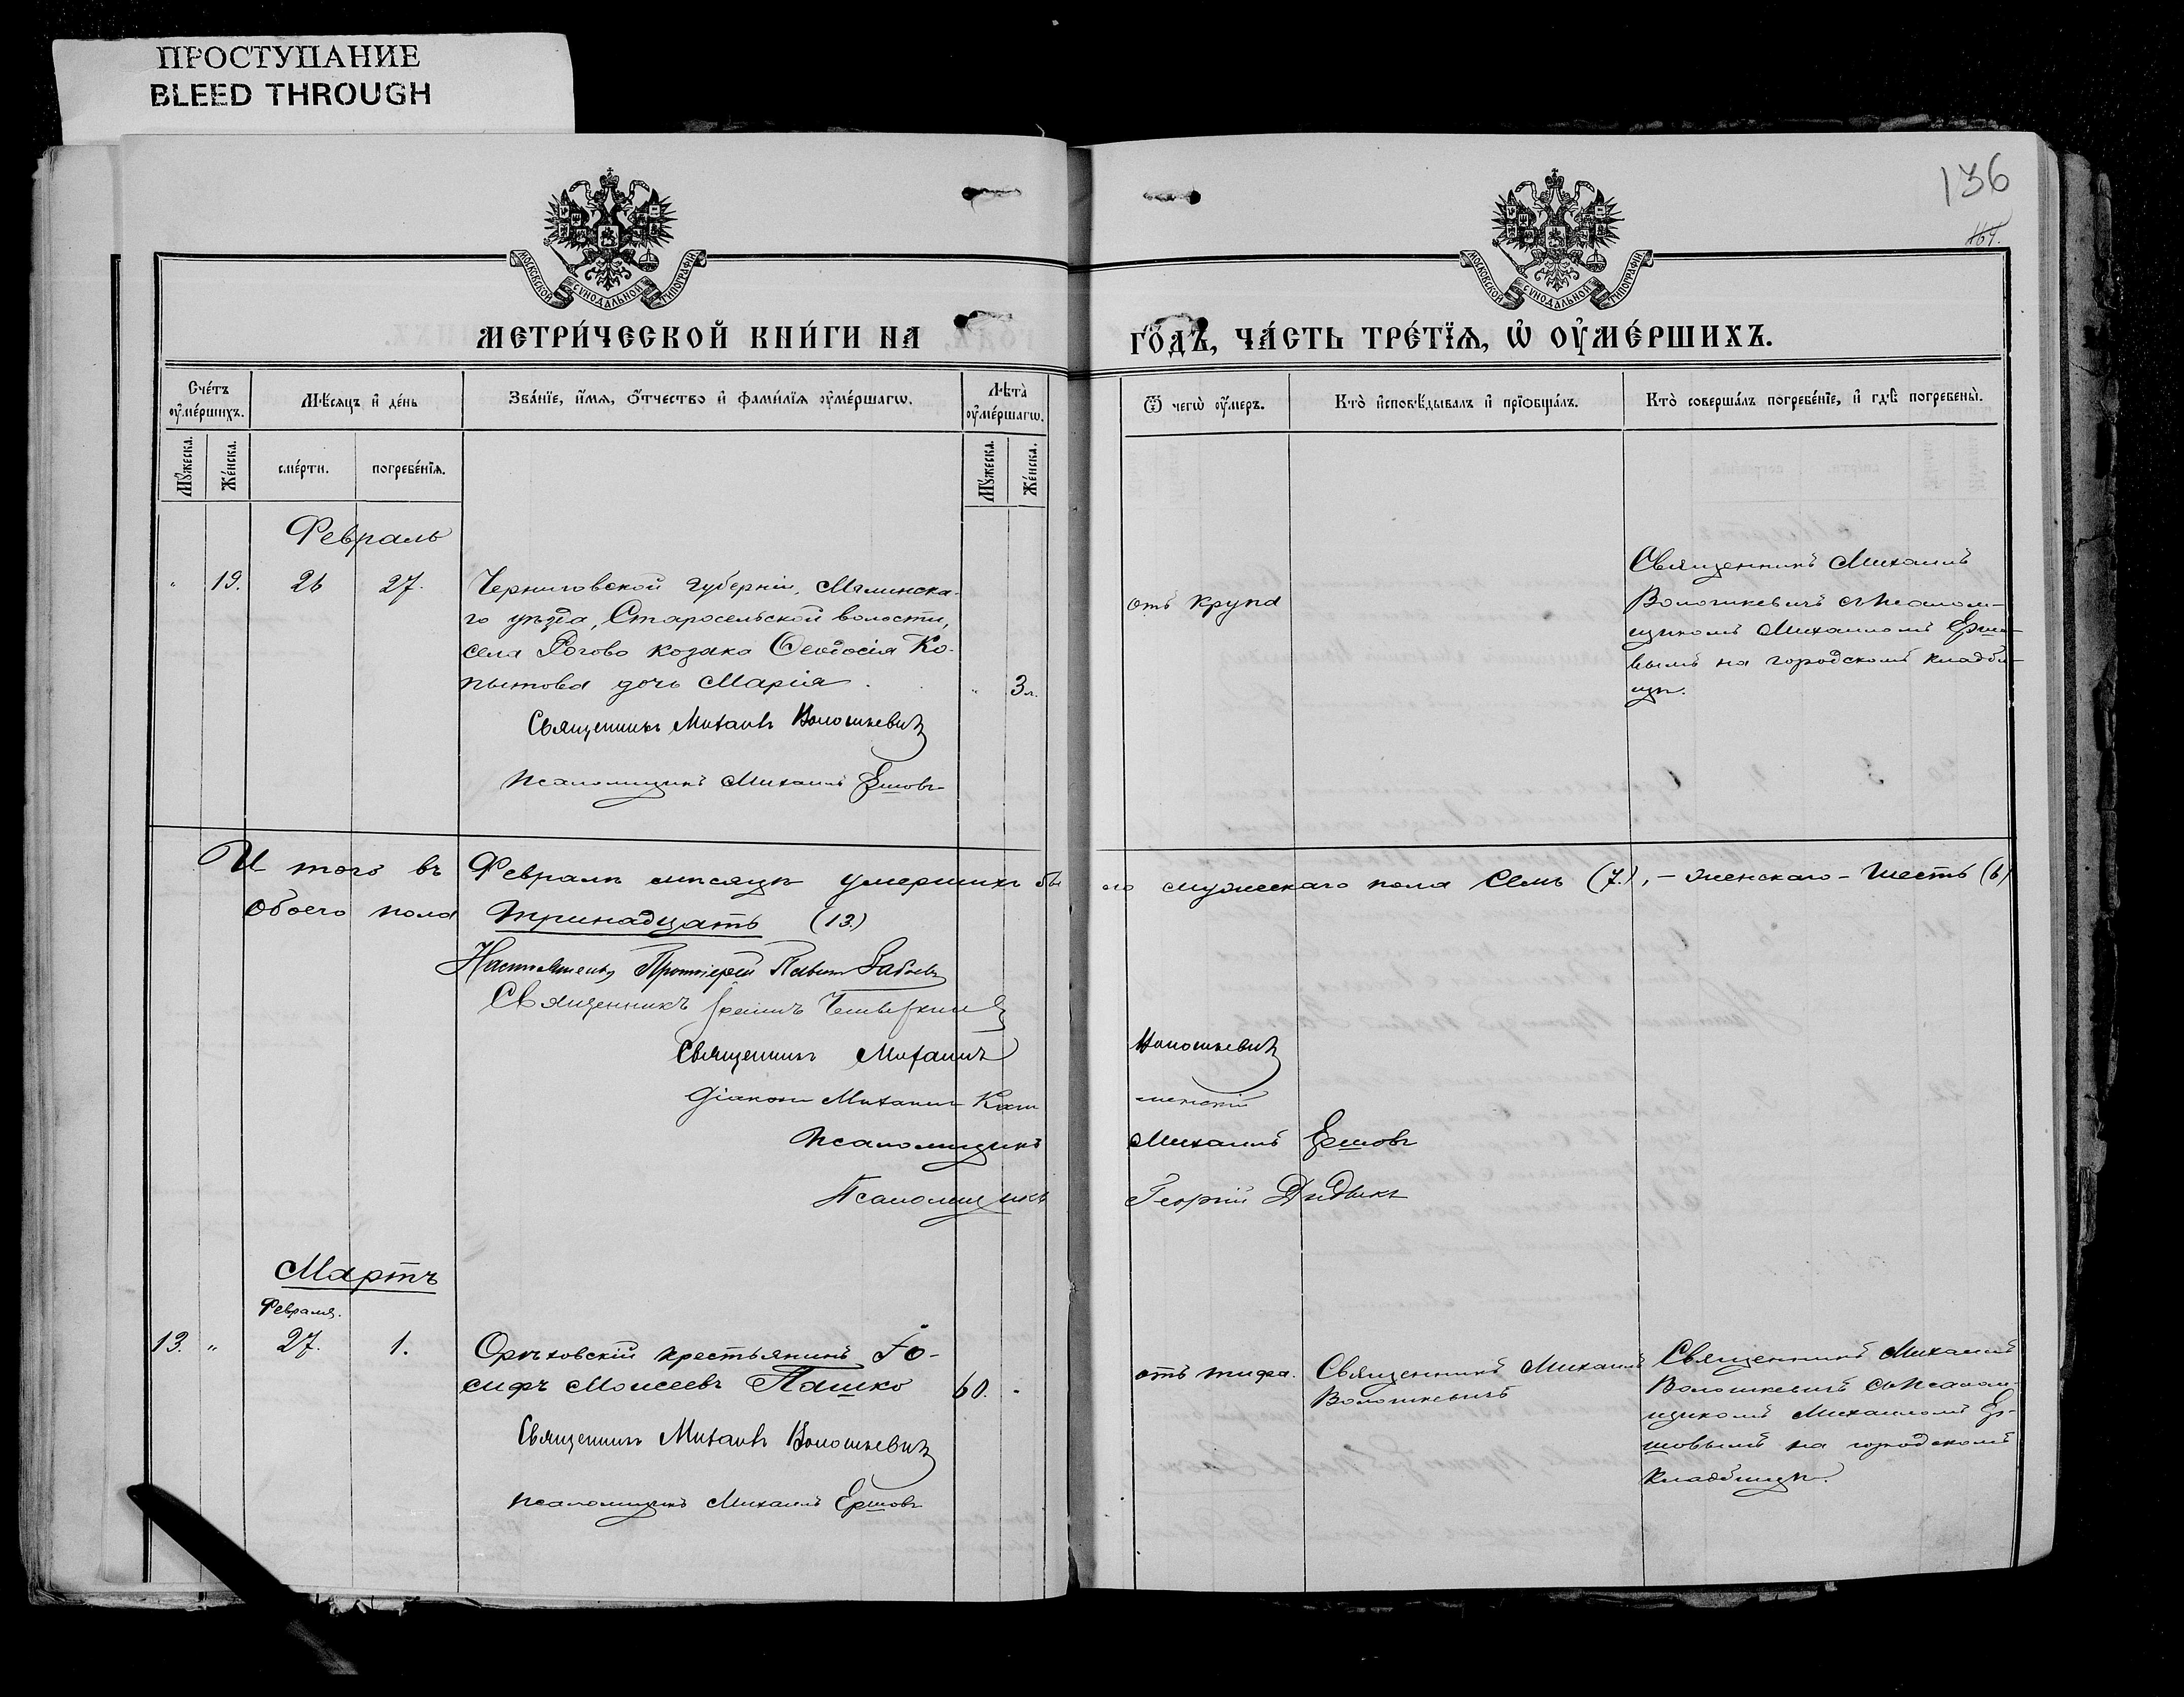 ПРОСТУПАНИЕ
BLEED THROUGH
136
164.
МОСКОВСКОЙ СѴНОДАЛЬНОЙ ТИПОГРАФІИ
МОСКОВСКОЙ СѴНОДАЛЬНОЙ ТИПОГРАФІИ
МЕТРИ́ЧЕСКОЙ КНИ́ГИ НА
ГО́ДЪ, ЧА́СТЬ ТРЕ́ТЇѦ, Ѡ҆ ОУ҆МЕ́РШИХЪ.
Сче́тъ оу҆ме́ршихъ.
Мꙋ́жеска.
Же́нска.
Мѣ́сѧцъ и҆ де́нь
сме́рти.
погребе́нїѧ.
Зва́нїе, и҆́мѧ, ѻ҆́тчество и҆ фами́лїѧ оу҆ме́ршагѡ.
Лѣ̑та̀ оу҆ме́ршагѡ.
Мꙋ́жеска.
Же́нска.
Ѿ чегѡ̀ оу҆́меръ.
Кто̀ и҆сповѣ́дывалъ и҆ прїѡбща́лъ.
Кто̀ соверша́лъ погребе́нїе, и҆ гдѣ̀ погребены̀.
Февраль
" 19. 26 27.
Черниговской губерніи, Мглинска-
го уѣзда, Старосельской волости,
села Рогова козака Ѳеодосія Ко-
пытова дочь Марія.
" 3 л.
Священникъ Михаилъ Волошкевичъ
Псаломщикъ Михаилъ Ершовъ
отъ крупа
Священникъ Михаилъ
Волошкевичъ съ псалом-
щикомъ Михаиломъ Ершо-
вымъ на городскомъ кладби-
щѣ.
И того въ Февралѣ мѣсяцѣ умершихъ бы ло мужескаго пола Семь (7.), – женскаго – Шесть (6)
обоего пола тринадцать (13.)
Настоятель, Протоіерей Павелъ
Священникъ
Священникъ Михаилъ Волошкевичъ
Діаконъ Михаилъ Кам менскій
Псаломщикъ Михаилъ Ершовъ
Псаломщикъ Георгій Дидыкъ
Мартъ
Февраля.
13. " 27. 1.
Орѣховскій крестьянинъ Іо-
сифъ Моисеевъ Пашко
60. "
Священникъ Михаилъ Волошкевичъ
псаломщикъ Михаилъ Ершовъ
отъ тифа.
Священникъ Михаилъ
Волошкевичъ
Священникъ Михаилъ
Волошкевичъ съ псалом-
щикомъ Михаиломъ Ер-
шовымъ на городскомъ
кладбищѣ.